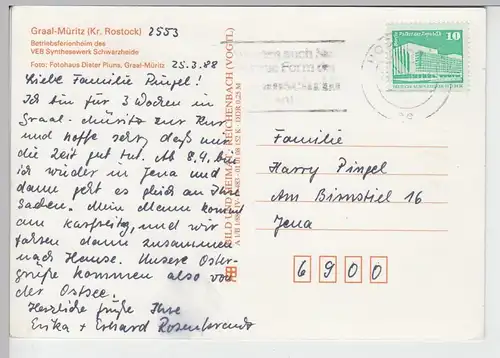 Graal-Müritz (Kr. Rostock) 2553
Betriebsferienheim des
VEB Synthesewerk Schwarzheide
Foto: Fotohaus Dieter Plums, Graal-Müritz 25.3.88
Liebe Familie Pingel!
Ich bin für 3 Wochen in
Graal-Müritz zur Kur
und hoffe sehr, daß mir
die Zeit gut tut. Ab 8.4. bin
ich wieder in Jena und
dann geht es gleich an Ihre
Sachen. Mein Mann kommt
am Karfreitag, und wir
fahren dann zusammen
nach Hause. Unsere Oster-
grüße kommen also von
der Ostsee.
Herzliche Grüße Ihre
Erika + Erhard
BILD UND HEIMAT REICHENBACH (VOGTL)
10
Familie
Harry Pingel
Am Birnstiel 16
Jena
6900